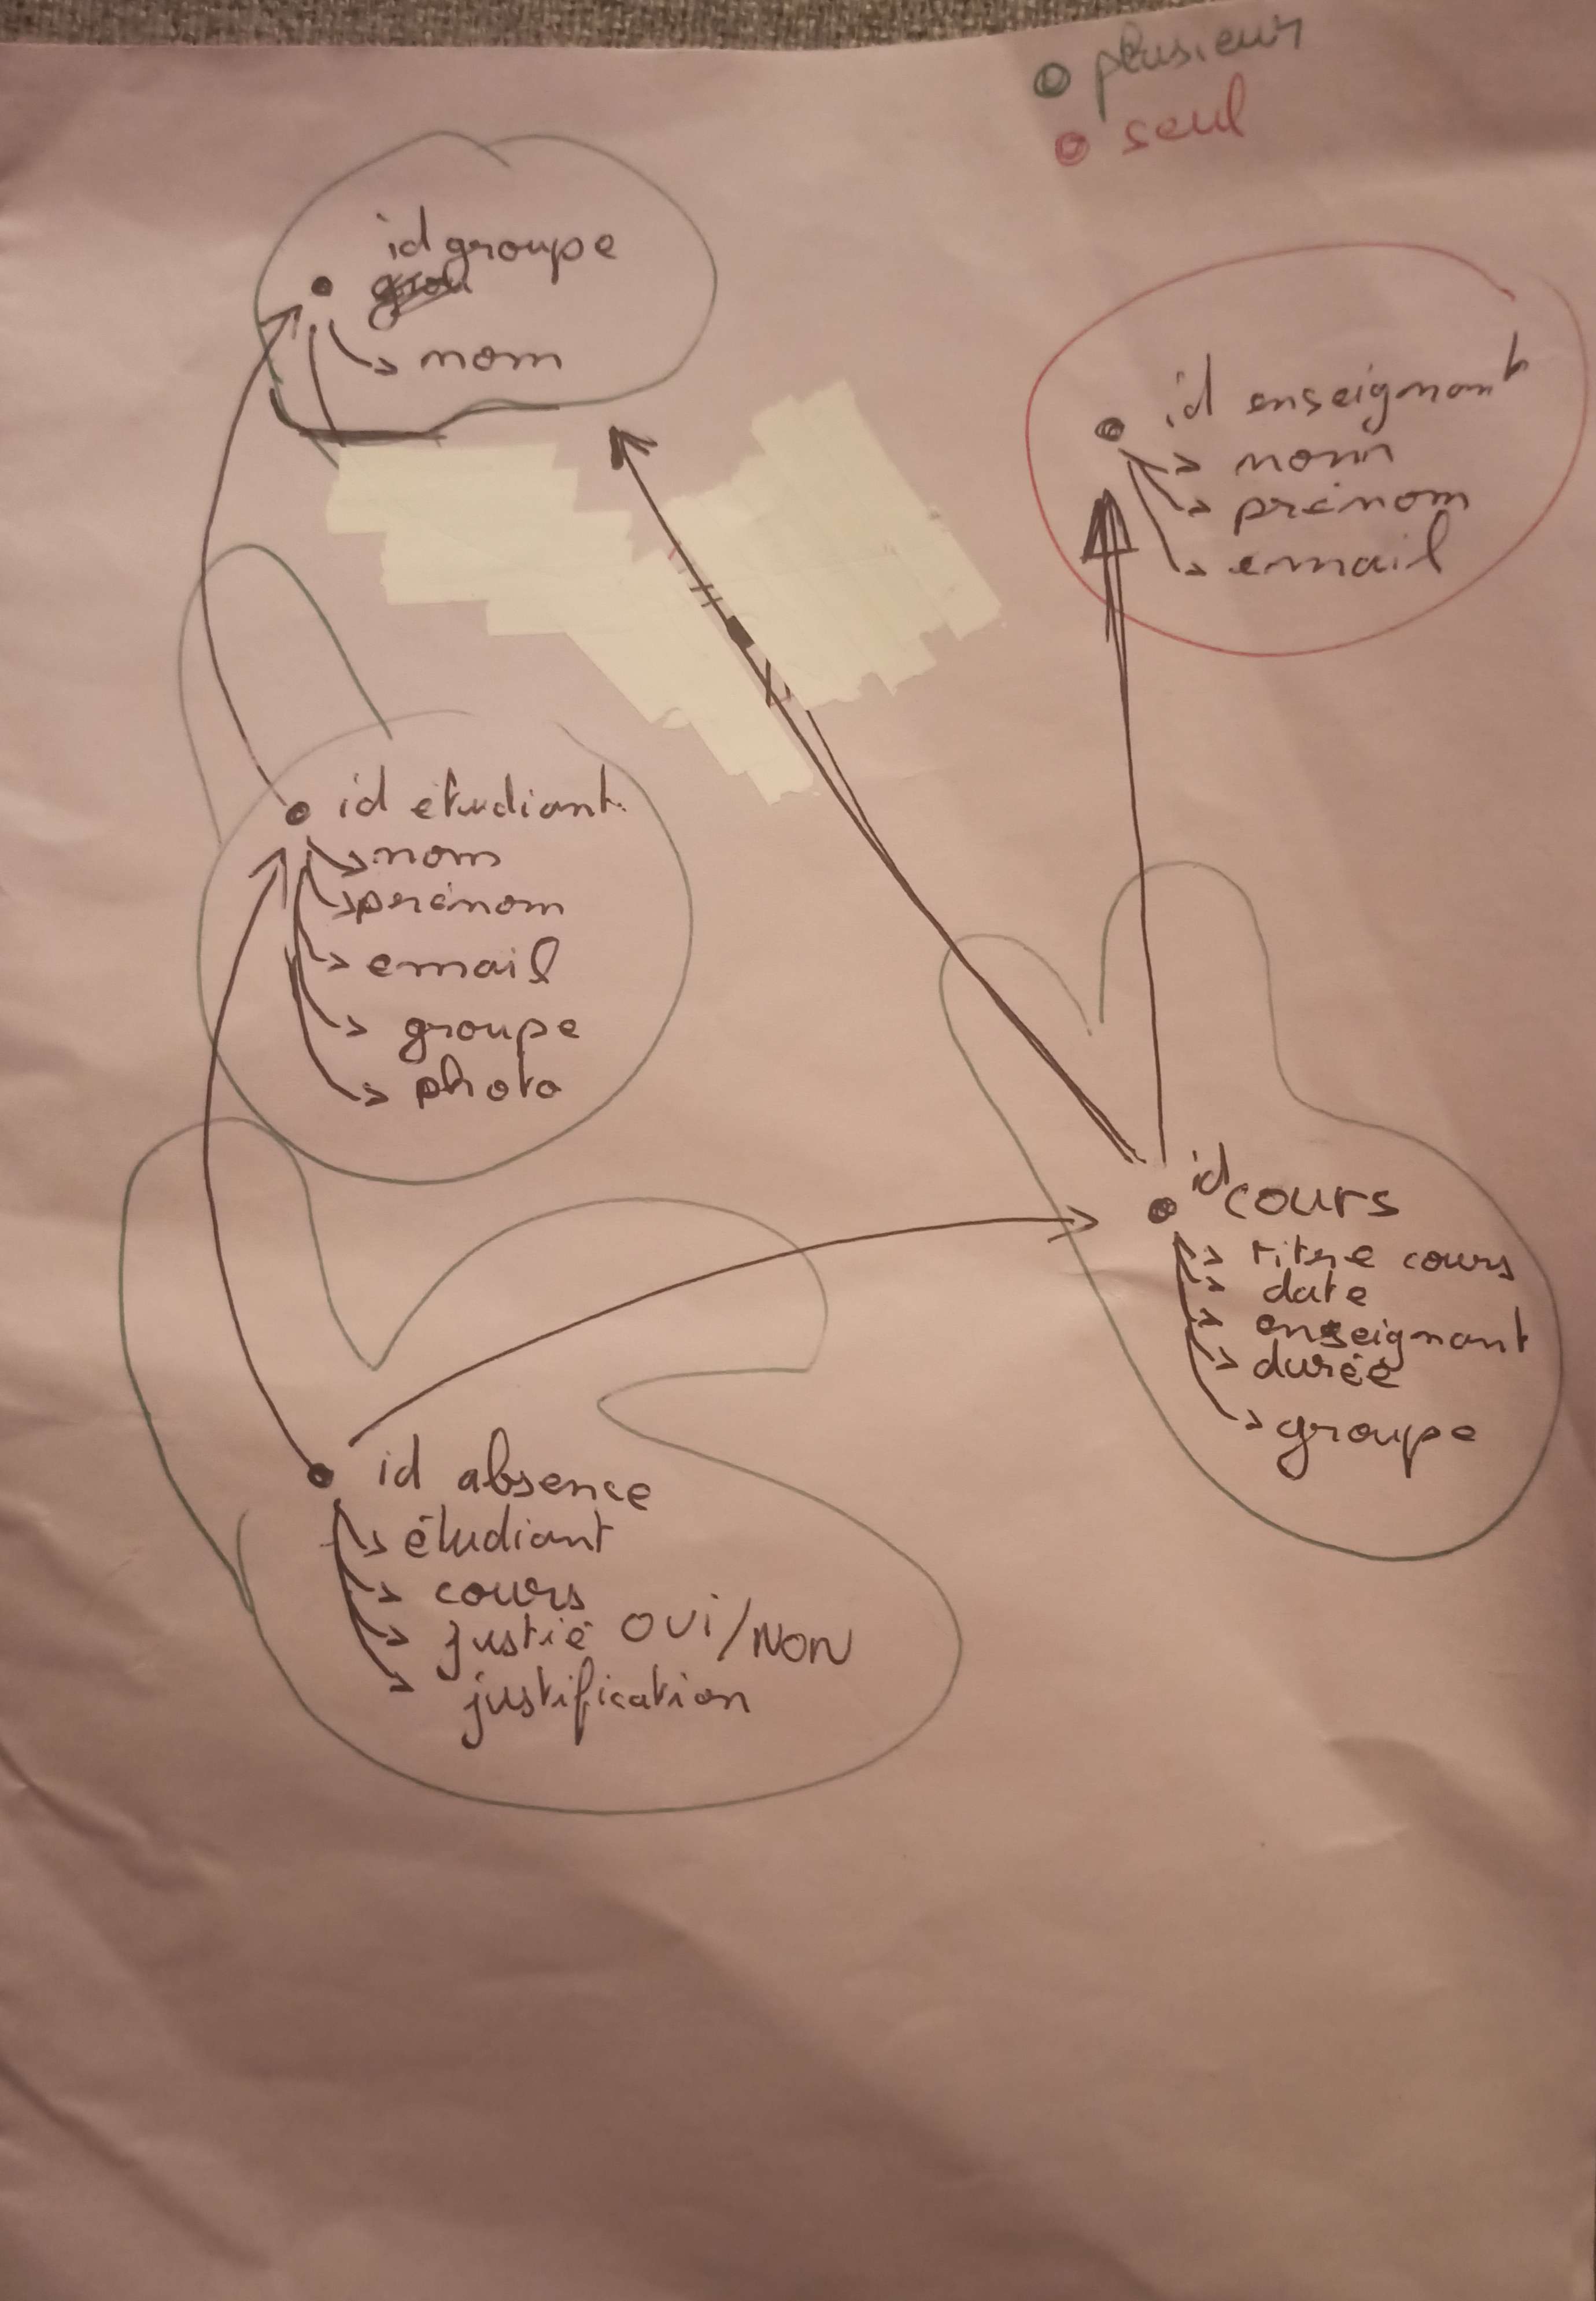 plusieurs
seul
id groupe
nom
id enseignant
nom
prénom
email
id étudiant
nom
prénom
email
groupe
photo
id cours
titre cours
date
enseignant
durée
groupe
id absence
étudiant
cours
justié OUi/NON
justification